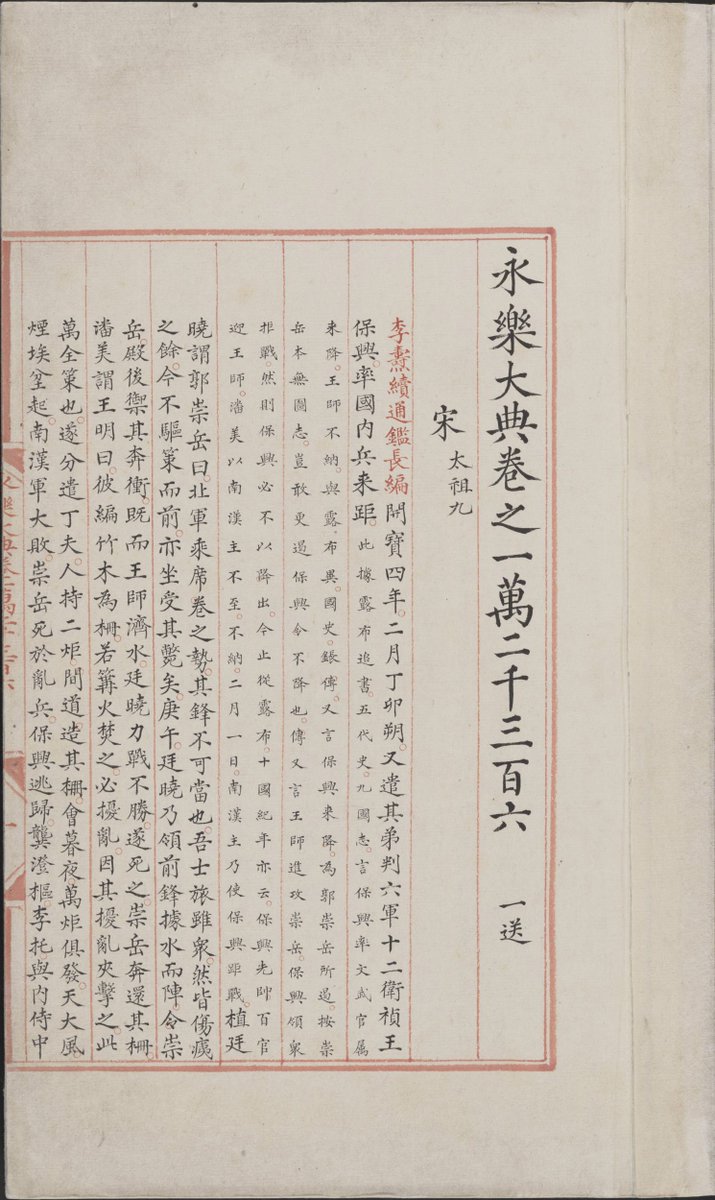 永樂大典卷之一萬二千三百六 一送
宋 太祖九
李燾續通鑑長編開寶四年。二月丁卯朔。又遣其弟判六軍十二衛禎王
保興。率國內兵來距。此據露布追書。五代史。九國志。言保興率文武官属
來降。王師不納。與露布異。國史。鋹傳。又言保興來降。為郭崇岳所遏。按崇
岳本無圖志。豈敢更遏保興令不降也。傳又言王師進攻崇岳。保興領衆
拒戰。然則保興必不以降出。今止從露布。十國紀年亦云。保興先帥百官
迎王師。潘美以南漢主不至。不納。二月一日。南漢主乃使保興距戰。植廷
曉謂郭崇岳曰。北軍乘席卷之勢。其鋒不可當也。吾士旅雖衆。然皆傷痍
之餘。今不驅策而前。亦坐受其斃矣。庚午。廷曉乃領前鋒據水而陣。令崇
岳。殿後禦其奔衝。既而王師濟水。廷曉力戰不勝。遂死之。崇岳奔還其柵。
潘美謂王明曰。彼編竹木為柵。若篝火焚之。必擾亂。因其擾亂夾擊之。此
萬全策也。遂分遣丁夫。人持二炬。間道造其柵。會暮夜萬炬俱發。天大風。
煙埃坌起。南漢軍大敗。崇岳死於亂兵。保興逃歸。龔澄樞。李托。與內侍中